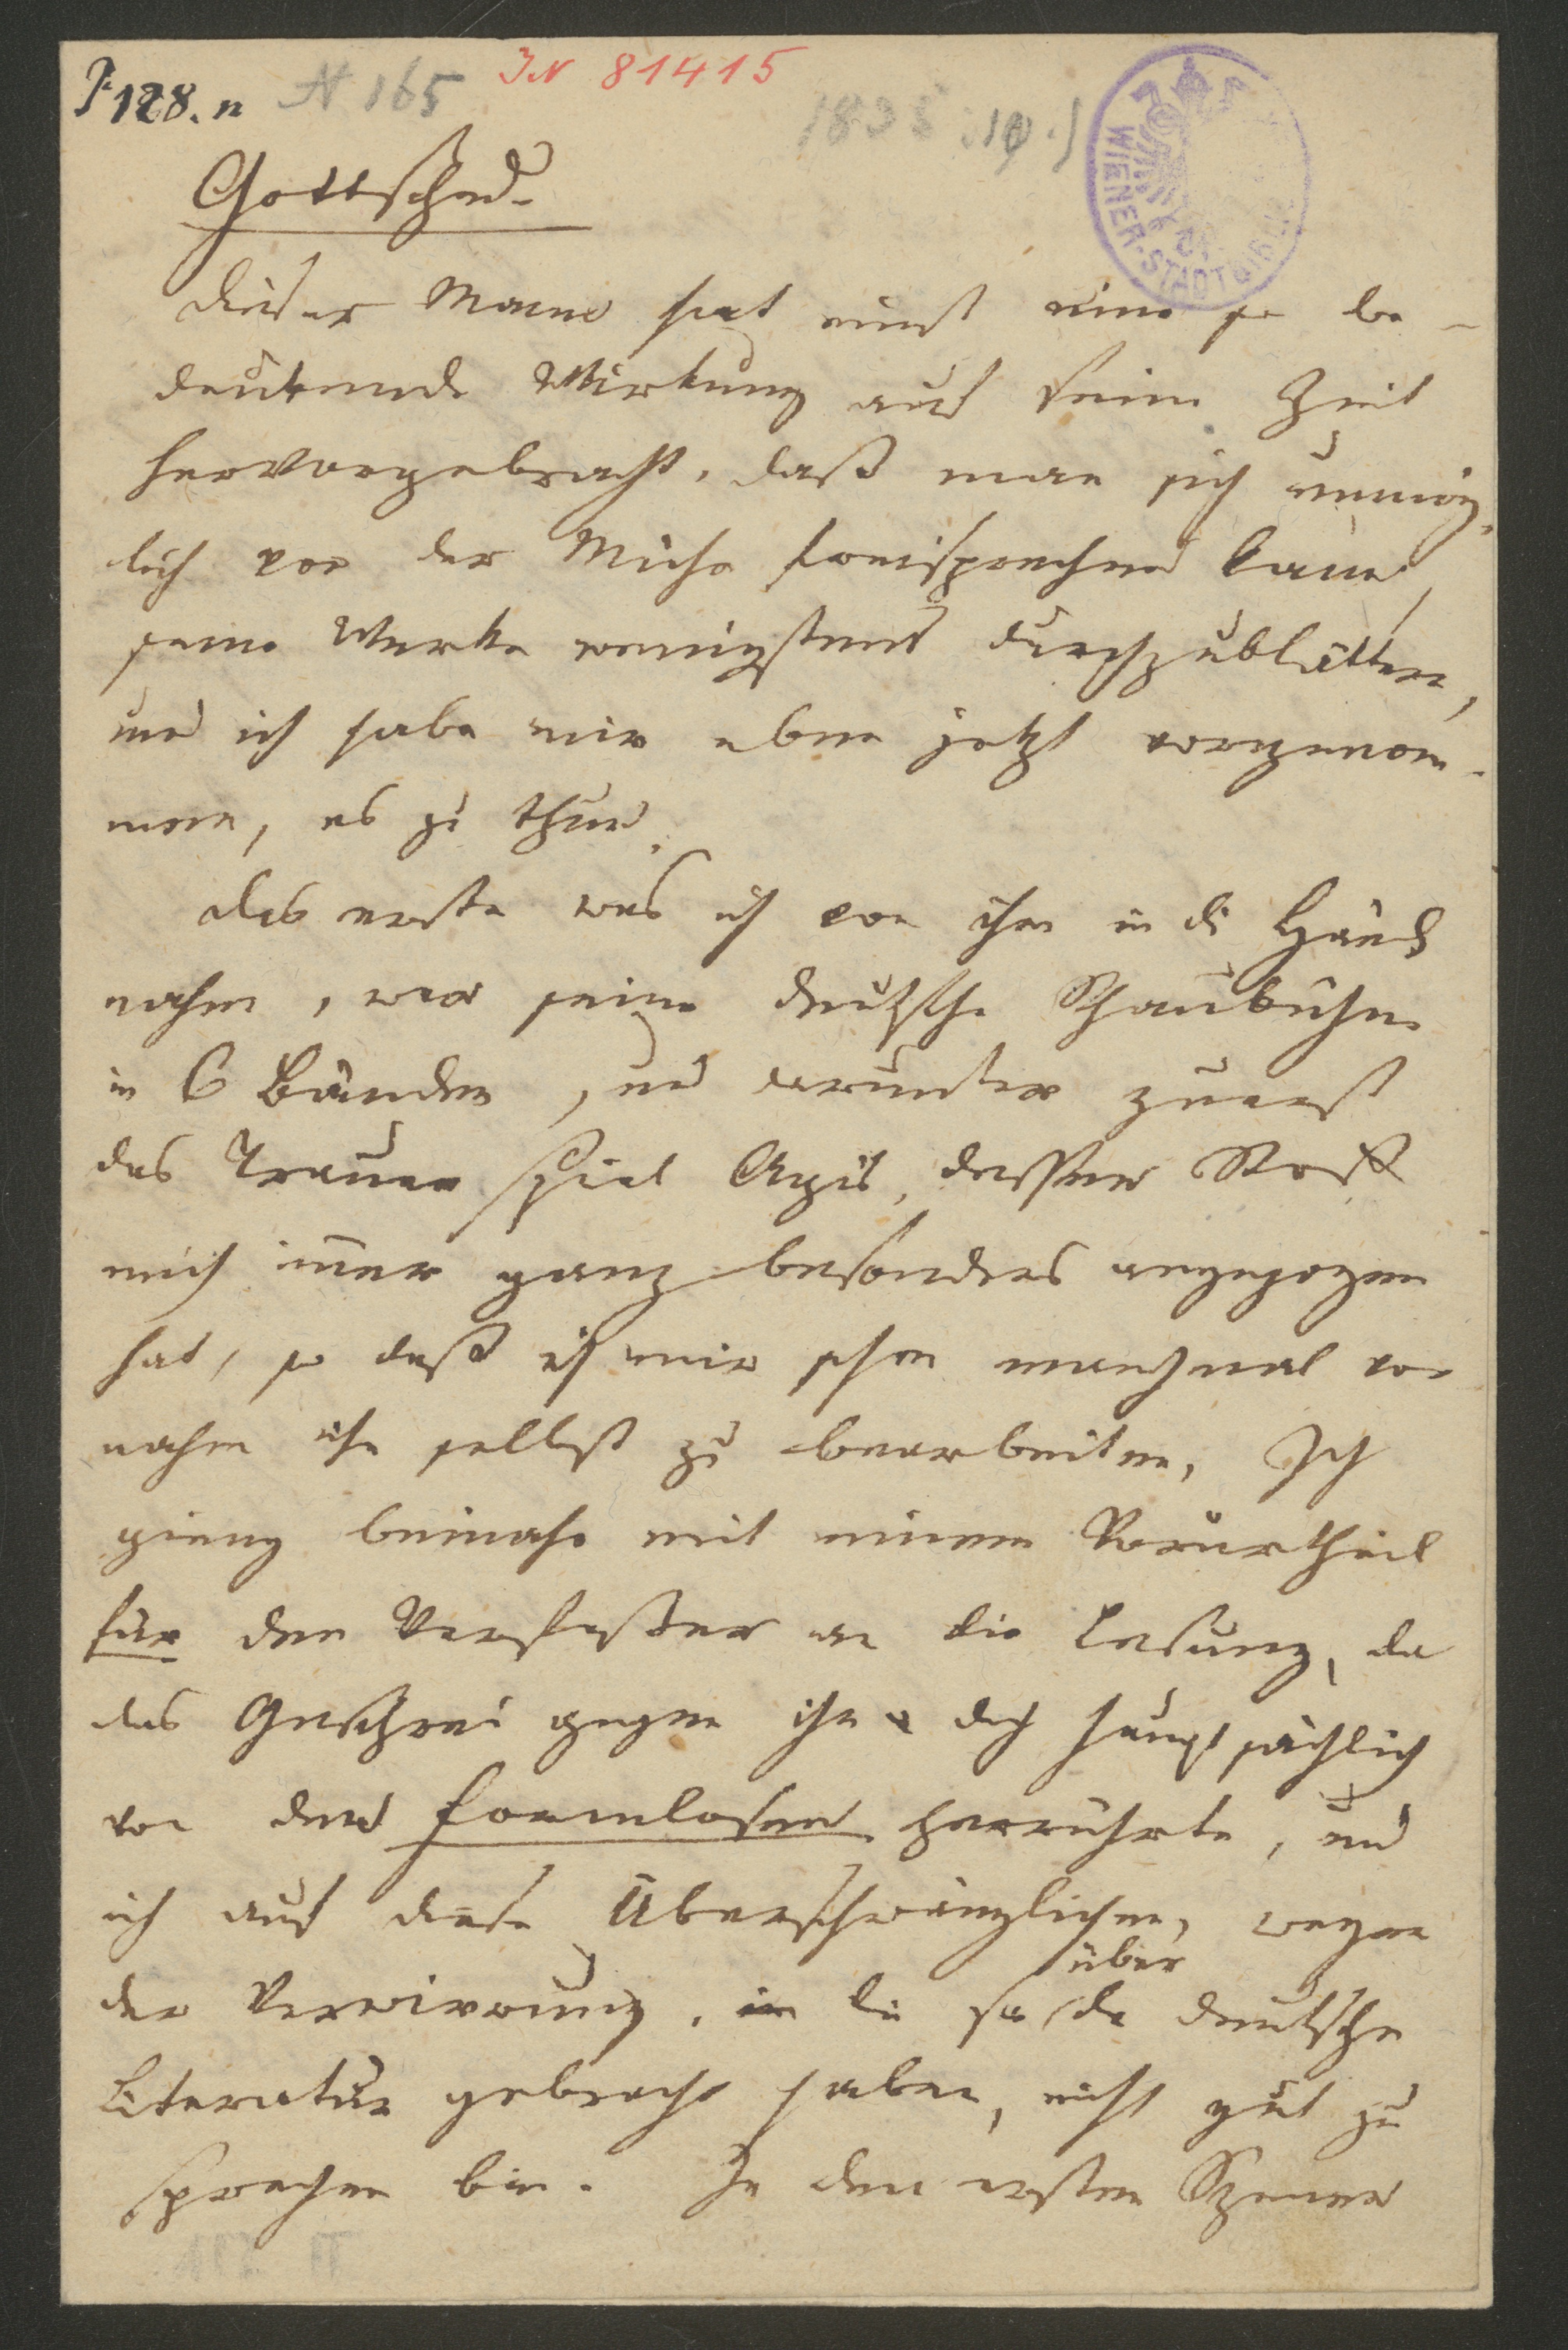 F 128. n N 165 IN 81415
1835 :10.)
WIENER-STADTBIBL
Gottsched.
Dieser Mann hat einst eine so be-
deutende Wirkung auf seine Zeit
hervorgebracht, daß man sich unmög-
lich von der Mühe freisprechen kann,
seine Werke wenigstens durchzublättern,
und ich habe mir eben jetzt vorgenom-
men, es zu thun.
Das erste was ich von ihm in die Hände
nahm, war seine deutsche Schaubühne
in 6 Bänden, und darunter zuerst
das Trauerspiel Agis, dessen Stoff
mich immer ganz besonders angezogen
hat, so daß ich mir schon manchmal vor
nahm ihn selbst zu bearbeiten. Ich
gieng beinahe mit einem Vorurtheil
für den Verfasser an die Lesung, da
das Geschrei gegen ihn doch hauptsächlich
von den Formlosen herrührte, und
ich auf diese Überschwänglichen, wegen
der Verwirrung, in die sie über die deutsche
Literatur gebracht haben, nicht gut zu
sprechen bin. In den ersten Szenen